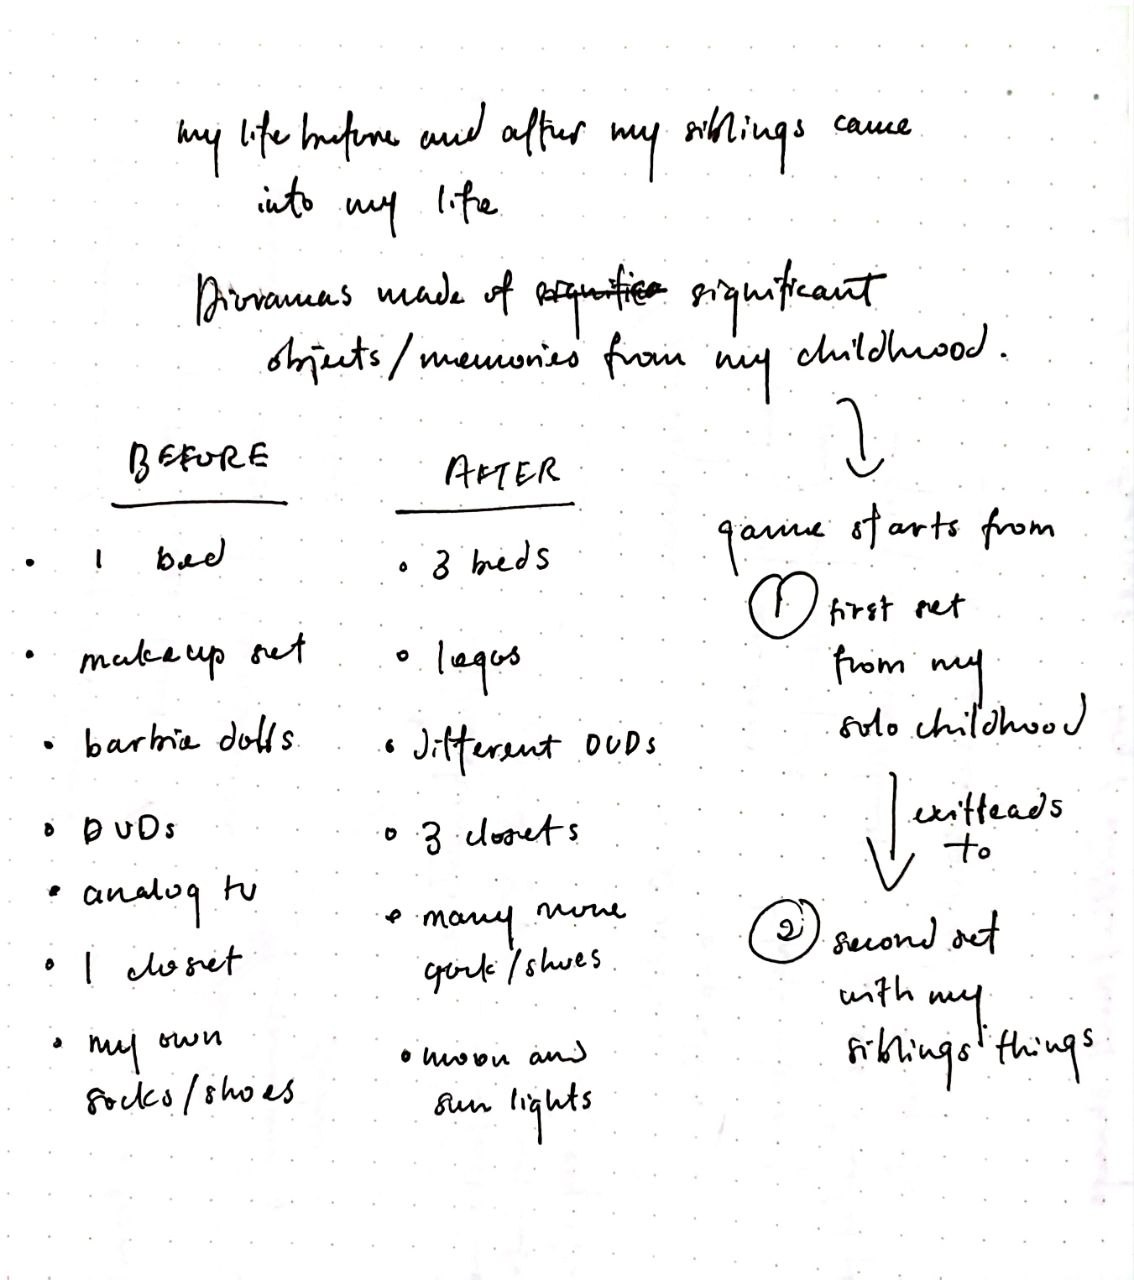 my life before and after my siblings came
into my life
Dioramas made of significant
objects/memories from my childhood.
BEFORE
• 1 bed
• makeup set
• barbie dolls
• DVDs
• analog tv
• 1 closet
• my own
socks/shoes
AFTER
• 3 beds
• legos
• different DVDs
• 3 closets
• many more
sock/shoes
• moon and
sun lights
game starts from
1 first set
from my
solo childhood
exit leads
to
2 second set
with my
siblings' things